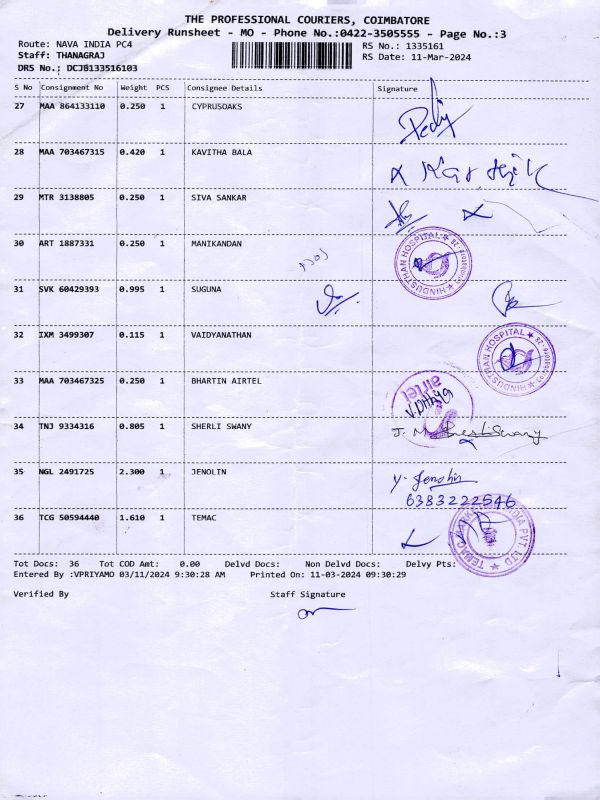 THE PROFESSIONAL COURIERS, COIMBATORE
Delivery Runsheet - MO - Phone No.:0422-3505555 - Page No.:3
Route: NAVA INDIA PC4 RS No.: 1335161
Staff: THANAGRAJ RS Date: 11-Mar-2024
DRS No.: DCJ0133516103
S No Consignment No Weight PCS Consignee Details Signature
27 MAA 864133110 0.250 1 CYPRUSOAKS
28 MAA 703467315 0.420 1 KAVITHA BALA
29 MTR 3138805 0.250 1 SIVA SANKAR
30 ART 1887331 0.250 1 MANIKANDAN
HINDUSTHAN HOSPITAL
31 SVK 60429393 0.995 1 SUGUNA
32 IXM 3499307 0.115 1 VAIDYANATHAN
HINDUSTHAN HOSPITAL
33 MAA 703467325 0.250 1 BHARTIN AIRTEL
airtel
34 TNJ 9334316 0.805 1 SHERLI SWANY
35 NGL 2491725 2.300 1 JENOLIN Y. Jenolin
6383222546
36 TCG 50594440 1.610 1 TEMAC
Tot Docs: 36 Tot COD Amt: 0.00 Delvd Docs: Non Delvd Docs: Delvy Pts:
Entered By :VPRIYAMO 03/11/2024 9:30:28 AM Printed On: 11-03-2024 09:30:29
Verified By Staff Signature